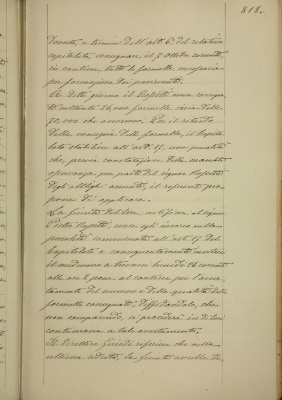 818.
dovuto, a termini dell'art. 6 del relativo
capitolato, consegnare il 7 ottobre corrente,
in cantiere, tutte le formelle necessarie
per formazione dei pavimenti.
A detto giorno il Rossetti aveva consegnato
soltanto 26,000 formelle circa delle
70,000 che occorrono. Per il ritardo
della consegna delle formelle, il Capitolato
stabilisce all'art. 15, una penalità
che, previa constatazione della mancata
osservanza, per parte del signor Rossetti
degli obblighi assunti, il referente propone
di applicare.
La Giunta delibera notificare al signor
Pietro Rossetti, esser egli incorso nella
penalità comminata all'art. 15 del
Capitolato e conseguentemente invitare
il medesimo a trovarsi lunedì 16 corrente
alle ore 2 pom. al cantiere per l'accertamento
del numero e della qualità delle
formelle consegnate, diffidandolo, che
non comparendo, si procederà in di lui
contumacia a tale accertamento.
Il Direttore Girola riferisce che nella
ultima seduta, la Giunta avrebbe de-